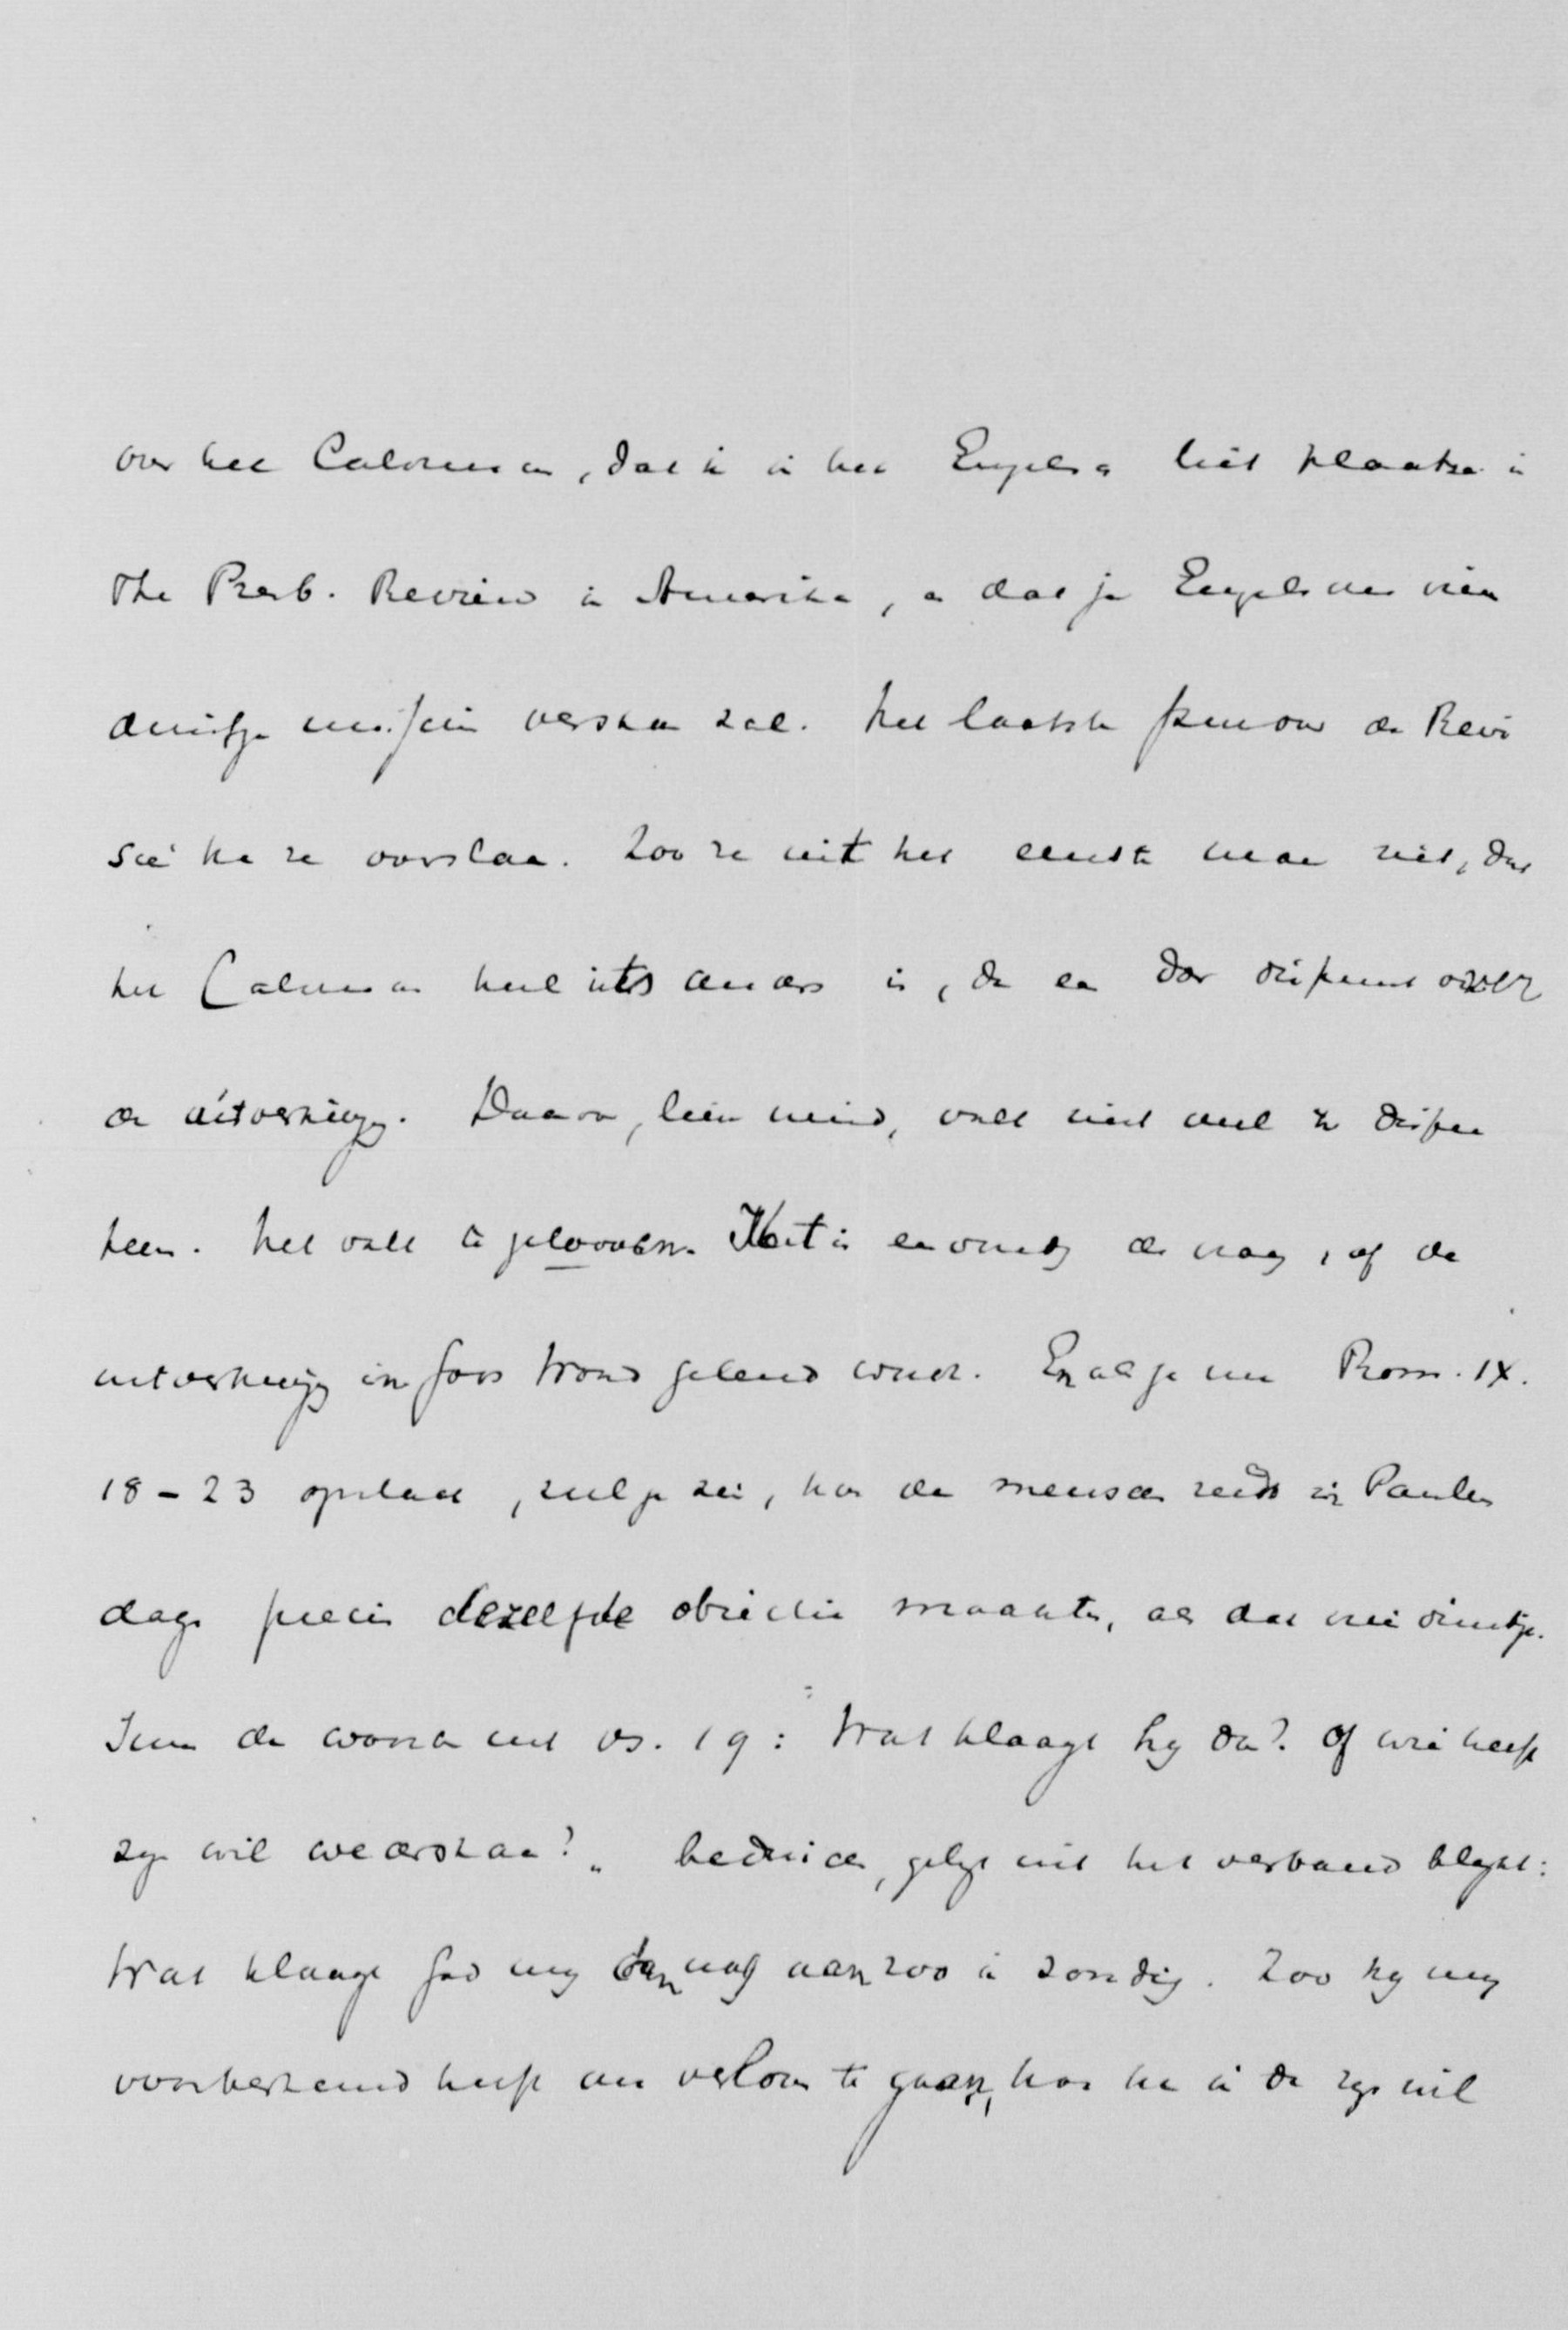 over het Calvinisme, dat ik in het Engelsch liet plaatsen in
The Presb. Review in Amerika, en dat je Engelsche vrien
dinnetje misschien verstaan zal. Het laatste stuk over de Revi
sie kan ze overslaan. Zoo ze uit het eerste maar ziet, dat
het Calvinisme heel iets anders is, dan een dor dispuut over
de uitverkiezing. Daarover, lieve meid, valt niet veel te dispu
teeren. Het valt te gelooven. Het is eenvoudig de vraag, of de
uitverkiezing in Gods Woord geleerd wordt. En als je nu Rom. IX.
18-23 opslaat, zul je zien, hoe de menschen reeds in Paulus
dagen precies dezelfde objectie maakten, als dat vriendinnetje.
Immers de woorden uit vs. 19: Wat klaagt hij dan? Of wie heeft
zijn wil weerstaan?" beduiden, gelijk uit het verband blijkt:
Wat klaagt God mij dan nog aan zoo ik zondig. Zoo hij mij
voorbestemd heeft om verloren te gaan, hoe kan ik dan zijn wil